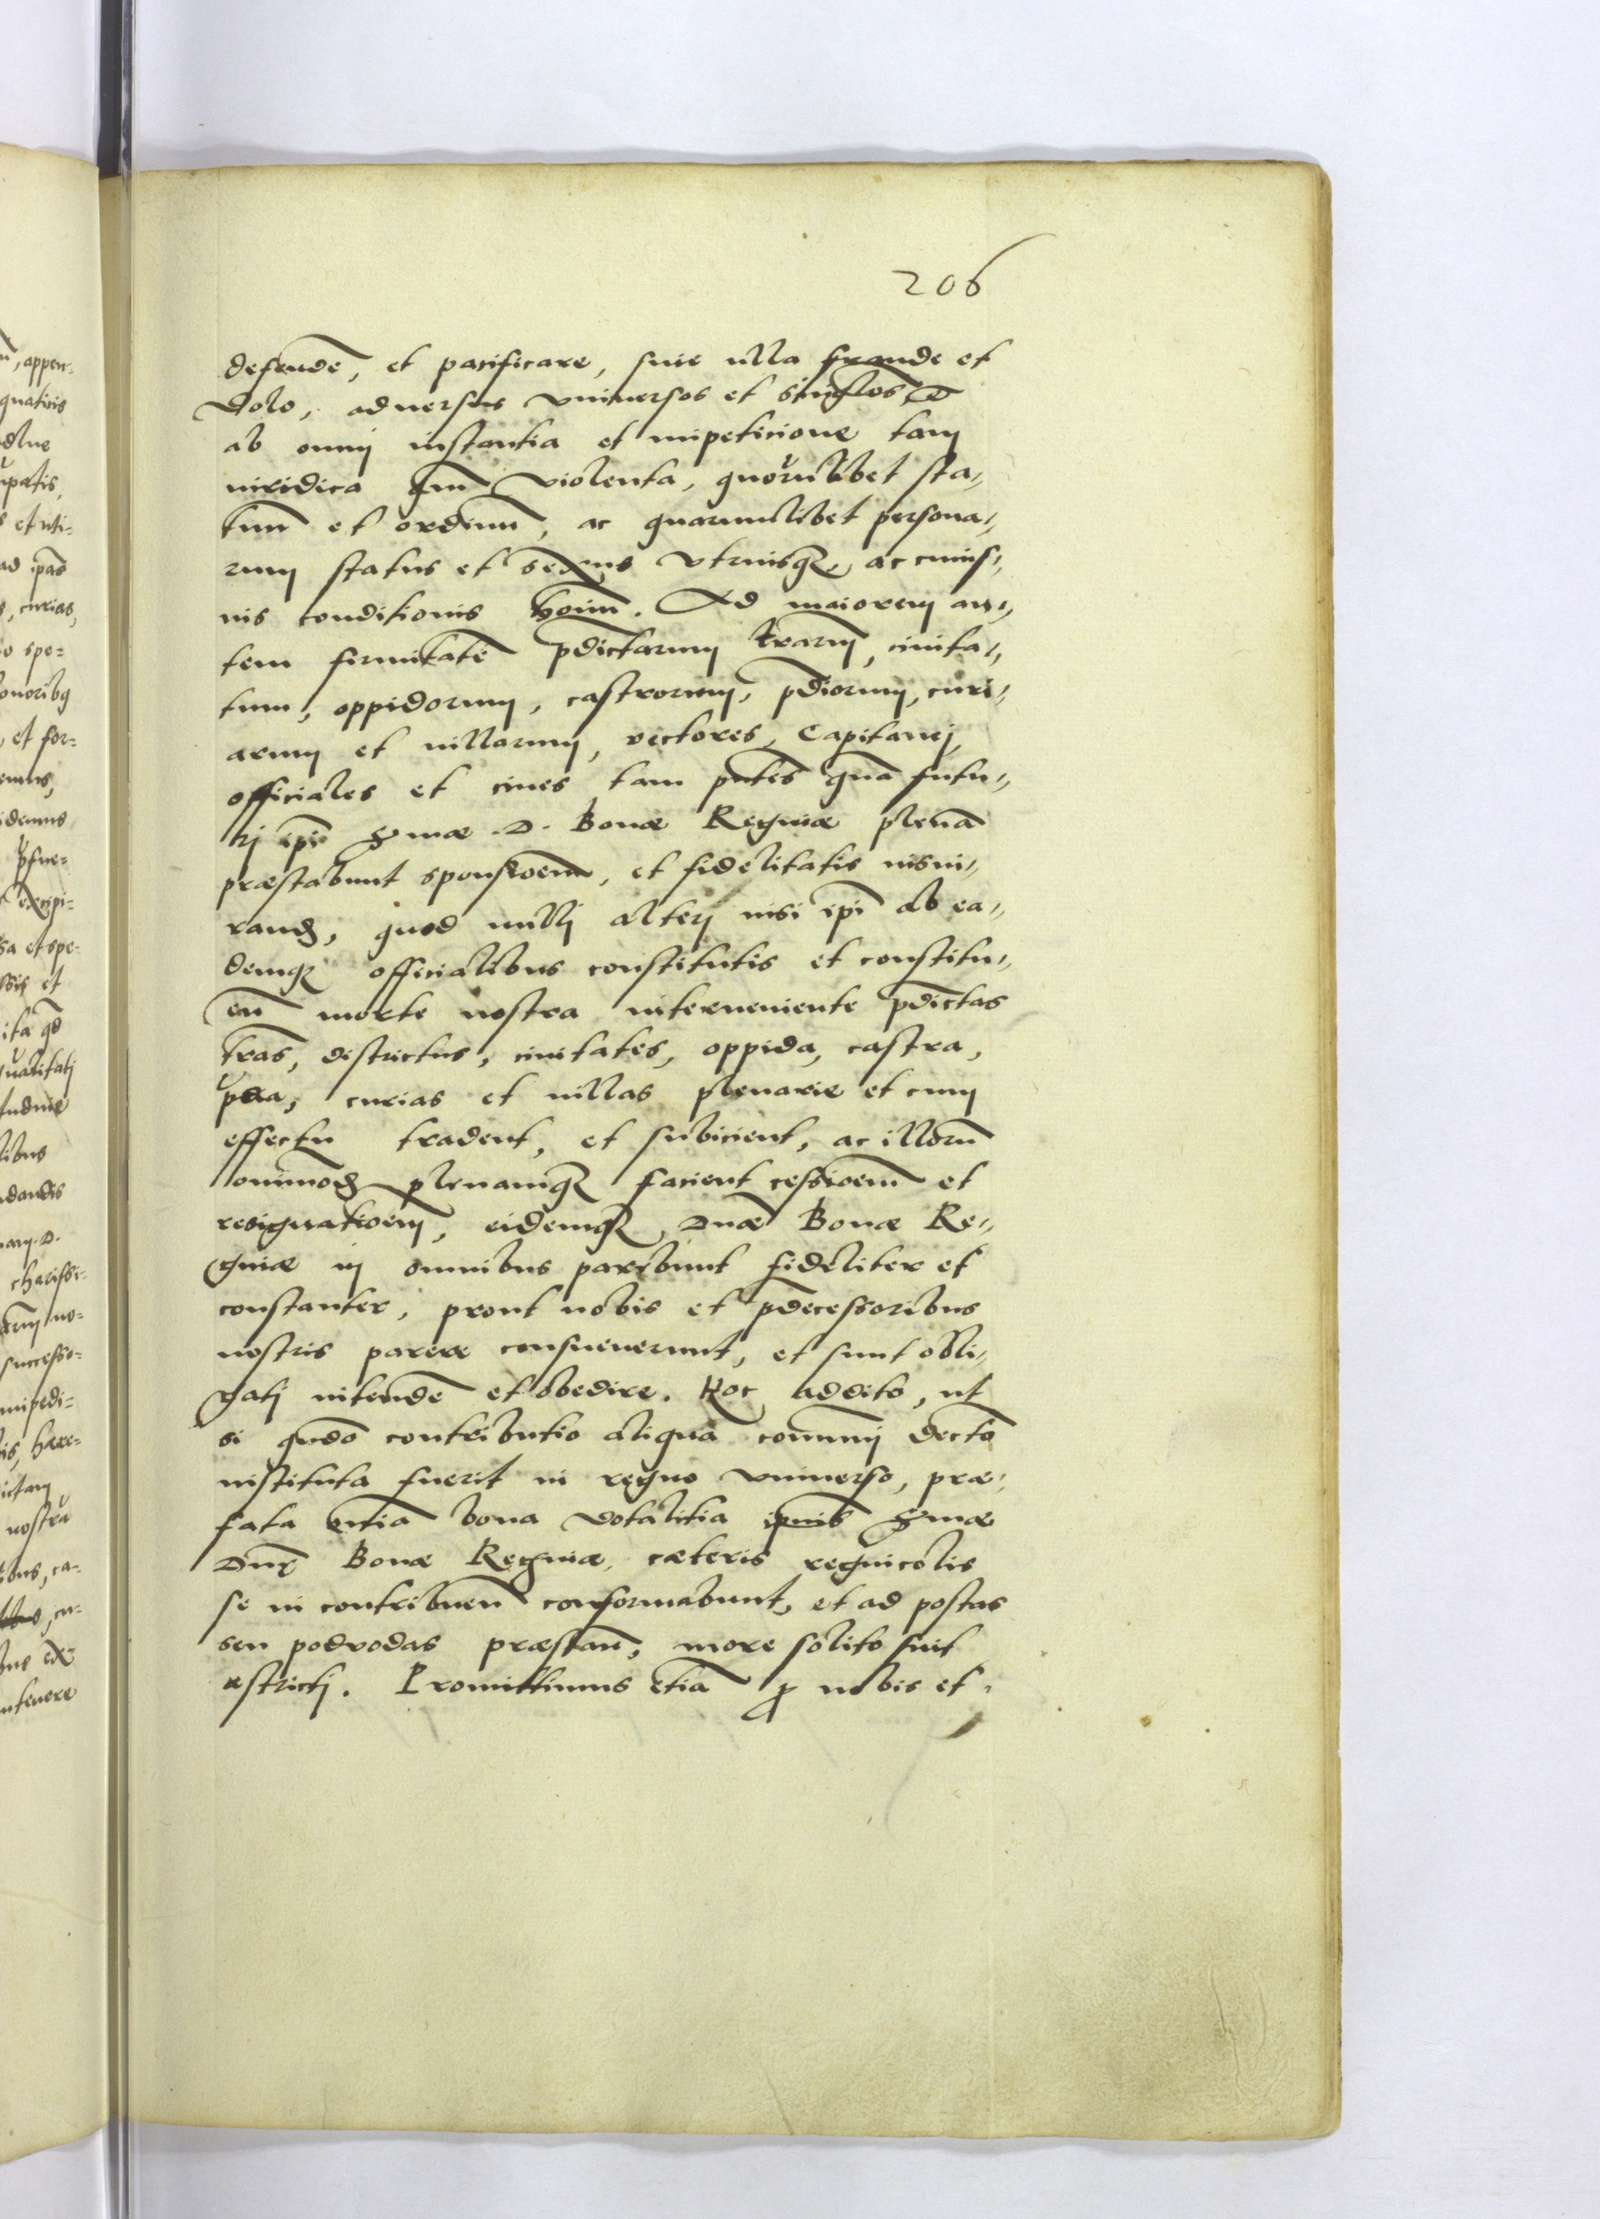 206
defendē, et pacificare, sine ulla fraude et
dolo, adversus universos et singłos
ab omnij instantia et impeticione tam
iuridica qm̄ violenta, quorūlibet sta-
tum et ordinū, ac quarumlibet persona-
rum status et sexus utriusq, ac cuius-
vis conditionis hoīm. Ad maiorem au-
tem firmitatē p̄dictarum tr̄arum, civita-
tum, oppidorum, castrorum, p̄diorum, curi-
arum et villarum, rectores, Capitanej,
officiales et cives tam pn̄tes quā futu-
rj ip̄i D. Bonæ Reginæ plenā
præstabunt sponsioem̄, et fidelitatis iusiu-
rand, quod nullj alterj nisi ip̄i ab ea-
demq officialibus constitutis et constitu-
en̄ morte nostra interveniente p̄dictas
tr̄as, districtus, civitates, oppida, castra,
p̄dia, curias et villas plenarie et cum
effectu tradent, et subicient, ac illorū
omnimod plenamq facient cessioem̄ et
resignatioem̄, eidemq Dn̄æ Bonæ Re-
ginæ in omnibus parebunt fideliter et
constanter, prout nobis et p̄decessoribus
nostris parere consueverunt, et sunt obli-
gatj intendē et obedire. Hoc addito, ut
si qn̄do contributio aliqua com̄unj decto
instituta fuerit in regno universo, præ-
fata ēt̄iā bona dotalitia ip̄ius
Dn̄æ Bonæ Reginæ cæteris regnicolis
se in contribuen̄ conformabunt, et ad postas
seu podvodas præstan̄, more solito sint
astrictj. Promittimus etiā p nobis et